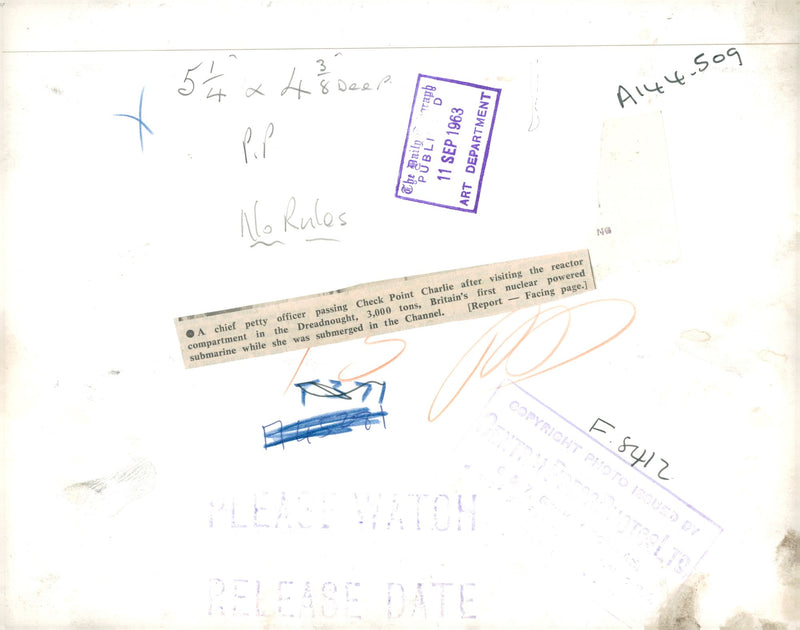 5 1/4" x 4 3/8" Deep.
A144-509
P.P
No Rules
The Daily
PUBLI D
11 SEP 1963
ART DEPARTMENT
NG
● A chief petty officer passing Check Point Charlie after visiting the reactor
compartment in the Dreadnought, 3,000 tons, Britain's first nuclear powered
submarine while she was submerged in the Channel. [Report — Facing page.]
F.8412
COPYRIGHT PHOTO ISSUED BY
CENTRAL PRESS PHOTOS LTD
PLEASE WATCH
RELEASE DATE